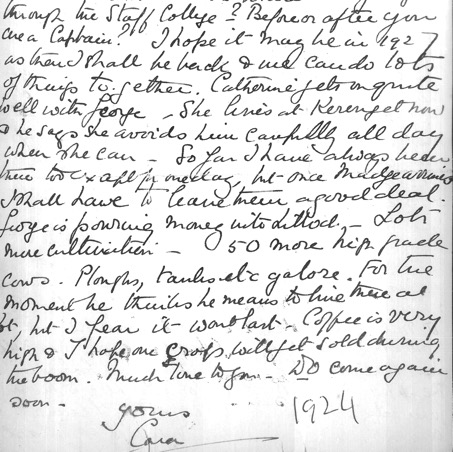 through the Staff College? Before or after you
are a Captain? I hope it may be in 1927
as then I shall be back & we can do lots
of things together. Catherine gets on quite
well with George - She lives at Kerenget now
& he says she avoids him carefully all day
when she can - So far I have always been
there too except for one day, but once Madge arrives
I shall have to leave them a good deal.
George is pouring money into - Lots
more cultivation - 50 more high grade
cows. Ploughs, tanks etc galore. For the
moment he thinks he means to live there a
bit, but I fear it wont last - Coffee is very
high & I hope one crops will get sold during
the boom. Much love to you - DO come again
soon -
yours
Cara
1924